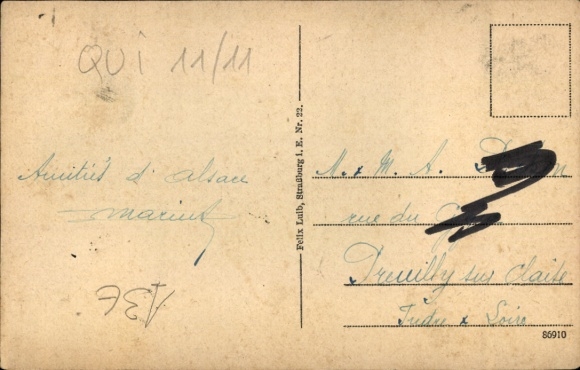 QUI 11/11
Amitiés d'alsace
Felix Luib, Straßburg i. E. Nr. 22.
M. & M. A.
rue du
Preuilly sur Claise
Indre & Loire
A3E
86910